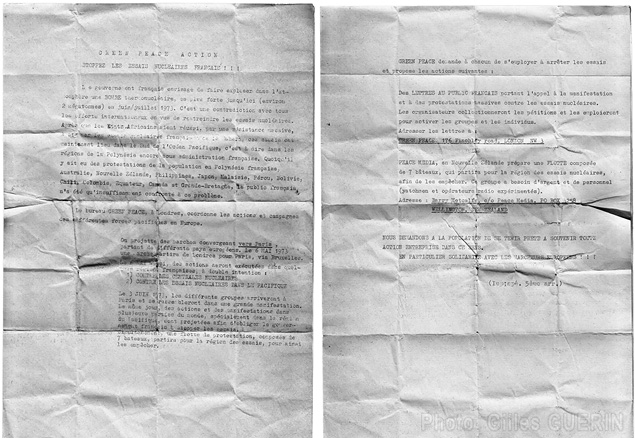 GREEN PEACE ACTION
STOPPEZ LES ESSAIS NUCLEAIRES FRANCAIS ! ! !
Le gouvernement français envisage de faire exploser dans l'at-
mosphère une BOMBE thermonucléaire, la plus forte jusqu'ici (environ
2 mégatonnes) en juin/juillet 1973. C'est une contradiction avec tous
les efforts internationaux en vue de restreindre les essais nucléaires.
Après que les Etats Africains aient réussi, par une résistance massive,
les essais nucléaires français dans le Sahara, ces essais ont
maintenant lieu dans le Sud de l'Océan Pacifique, c'est à dire dans les
régions de la Polynésie encore sous administration française. Quoiqu'il
y ait eu des protestations de la population en Polynésie française,
Australie, Nouvelle Zélande, Philippines, Japon, Malaisie, Pérou, Bolivie,
Chili, Colombie, Equateur, Canada et Grande-Bretagne, le public français
n'a été qu'insuffisamment confronté à ce problème.
Le bureau GREEN PEACE, à Londres, coordonne les actions et campagnes
des différentes forces pacifiques en Europe.
On projette des marches convergeant vers Paris,
partant de différents pays européens. Le 6 MAI 1973
une marche partira de Londres pour Paris, via Bruxelles.
des actions seront exécutées dans quel-
françaises, à double intention :
1) CONTRE LES CENTRALES NUCLEAIRES
2) CONTRE LES ESSAIS NUCLEAIRES DANS LE PACIFIQUE
Le 3 JUIN 1973, les différents groupes arriveront à
Paris et se rassembleront dans une grande manifestation.
Le même jour des actions et des manifestations dans
plusieurs parties du monde, spécialement dans la région
du Pacifique, sont projetées afin d'obliger le gouver-
nement français à stopper les essais.
une flotte de protestation, composée de
7 bateaux, partira pour la région des essais, pour ainsi
les empêcher.
GREEN PEACE demande à chacun de s'employer à arrêter les essais
et propose les actions suivantes :
Des LETTRES AU PUBLIC FRANCAIS portant l'appel à la manifestation
et à des protestations massives contre les essais nucléaires.
Les organisateurs collectionneront les pétitions et les exploiteront
pour activer les groupes et les individus.
Adresser les lettres à :
GREEN PEACE, 174 Finchley Road, LONDON NW 3
PEACE MEDIA, en Nouvelle Zélande prépare une FLOTTE composée
de 7 bâteaux, qui partira pour la région des essais nucléaires,
afin de les empêcher. Ce groupe a besoin d'argent et de personnel
(yatchmen et opérateurs radio expérimentés).
Adresse : Barry Metcalfe, c/o Peace Media, PO BOX
NOUS DEMANDONS A LA POPULATION DE SE TENIR PRETE A SOUTENIR TOUTE
ACTION ENTREPRISE DANS CE SENS.
EN PARTICULIER SOLIDARITE AVEC LES MARCHEURS EUROPEENS ! ! !
Photo Gilles GUERIN